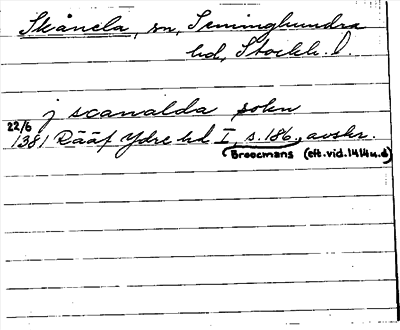 Skånela, sn, Seminghundra
hd, Stockh. l.
j scanalda sokn
22/6
1381 Rääf Ydre hd I, s. 186., avskr.
Broocmans (eft. vid. 1414 u.d)